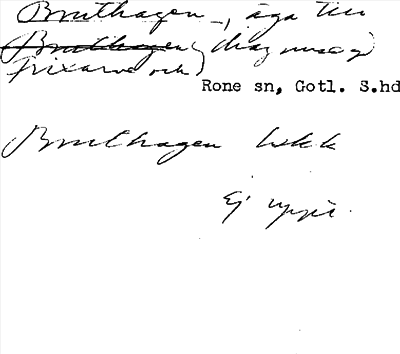 Bruthagen –, äga till
Bruthagen (Hagmuse)
Frixarve och
Rone sn, Gotl. S.hd
Bruthagen hskk
Ej uppt.